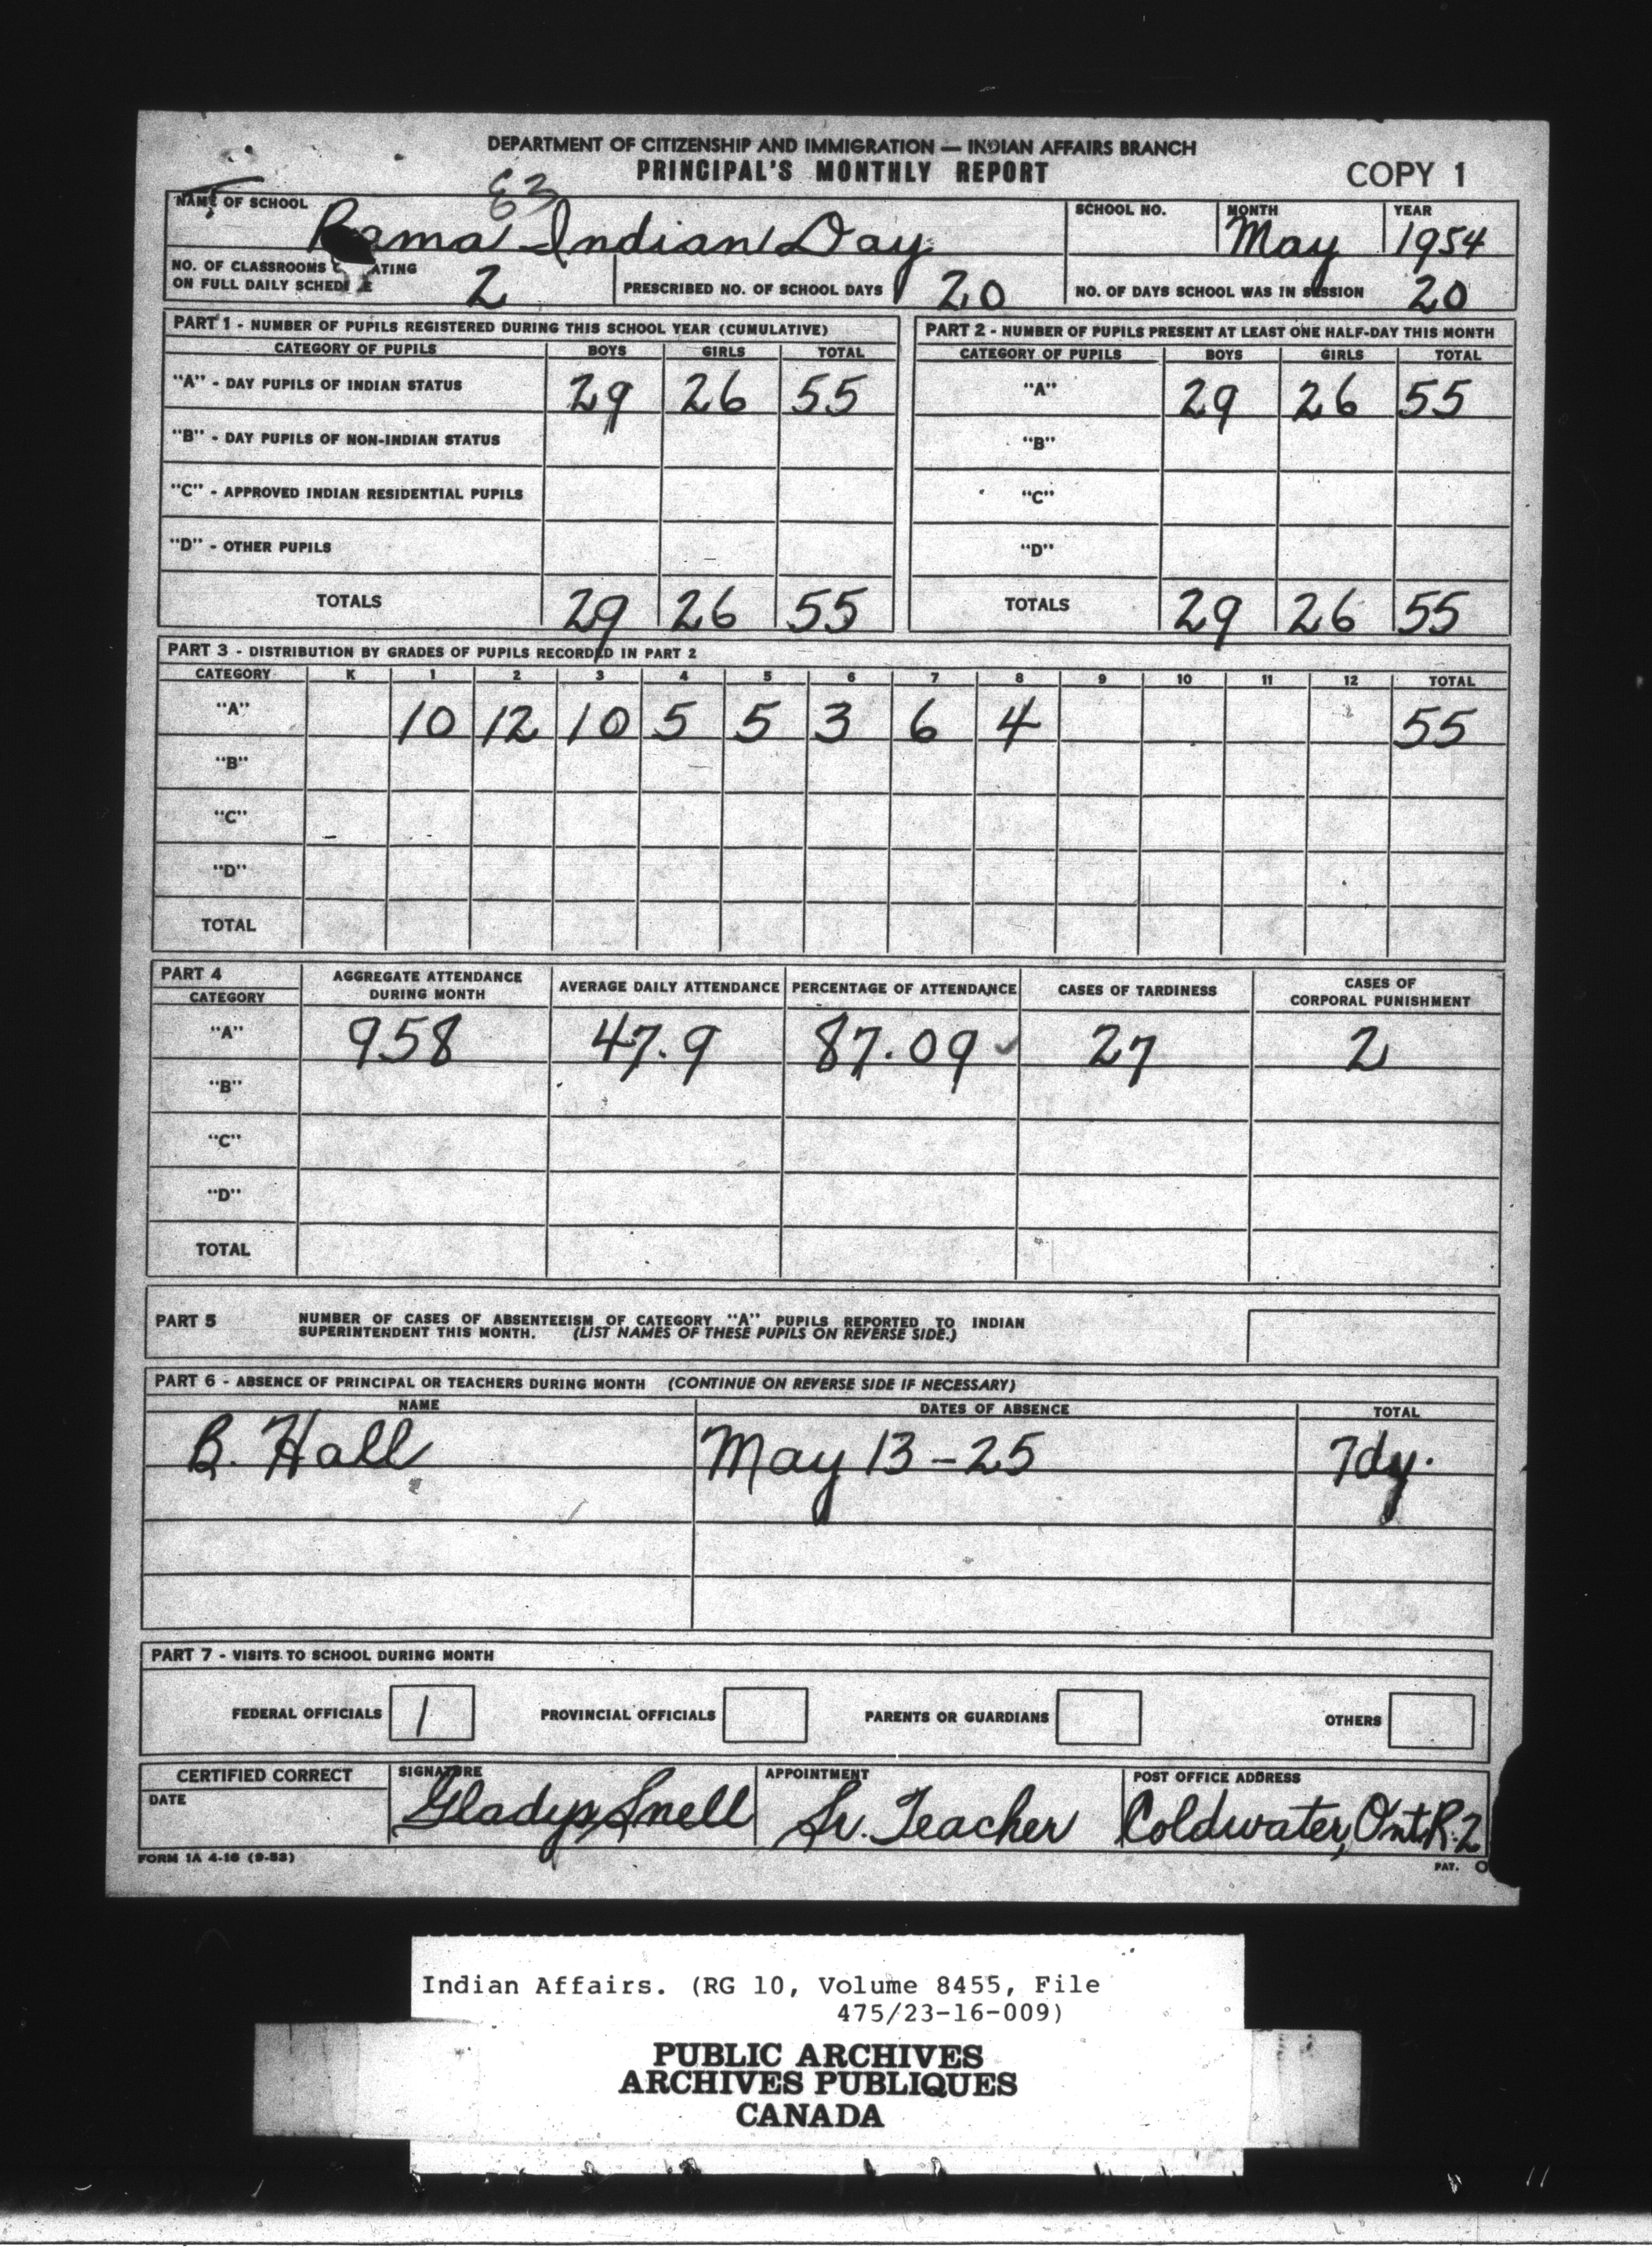 DEPARTMENT OF CITIZENSHIP AND IMMIGRATION — INDIAN AFFAIRS BRANCH
PRINCIPAL'S MONTHLY REPORT
COPY 1
NAME OF SCHOOL Rama Indian Day SCHOOL NO. MONTH May YEAR 1954
NO. OF CLASSROOMS ATING
ON FULL DAILY SCHED E 2 PRESCRIBED NO. OF SCHOOL DAYS 20 NO. OF DAYS SCHOOL WAS IN SESSION 20
PART 1 - NUMBER OF PUPILS REGISTERED DURING THIS SCHOOL YEAR (CUMULATIVE)
CATEGORY OF PUPILS BOYS GIRLS TOTAL
"A" - DAY PUPILS OF INDIAN STATUS 29 26 55
"B" - DAY PUPILS OF NON-INDIAN STATUS
"C" - APPROVED INDIAN RESIDENTIAL PUPILS
"D" - OTHER PUPILS
TOTALS 29 26 55
PART 2 - NUMBER OF PUPILS PRESENT AT LEAST ONE HALF-DAY THIS MONTH
CATEGORY OF PUPILS BOYS GIRLS TOTAL
"A" 29 26 55
"B"
"C"
"D"
TOTALS 29 26 55
PART 3 - DISTRIBUTION BY GRADES OF PUPILS RECORDED IN PART 2
CATEGORY K 1 2 3 4 5 6 7 8 9 10 11 12 TOTAL
"A" 10 12 10 5 5 3 6 4 55
"B"
"C"
"D"
TOTAL
PART 4
CATEGORY AGGREGATE ATTENDANCE DURING MONTH AVERAGE DAILY ATTENDANCE PERCENTAGE OF ATTENDANCE CASES OF TARDINESS CASES OF CORPORAL PUNISHMENT
"A" 958 47.9 87.09 ✓ 27 2
"B"
"C"
"D"
TOTAL
PART 5 NUMBER OF CASES OF ABSENTEEISM OF CATEGORY "A" PUPILS REPORTED TO INDIAN
SUPERINTENDENT THIS MONTH. (LIST NAMES OF THESE PUPILS ON REVERSE SIDE.)
PART 6 - ABSENCE OF PRINCIPAL OR TEACHERS DURING MONTH (CONTINUE ON REVERSE SIDE IF NECESSARY)
NAME DATES OF ABSENCE TOTAL
B. Hall May 13 - 25 7dy.
PART 7 - VISITS TO SCHOOL DURING MONTH
FEDERAL OFFICIALS 1 PROVINCIAL OFFICIALS PARENTS OR GUARDIANS OTHERS
CERTIFIED CORRECT SIGNATURE APPOINTMENT POST OFFICE ADDRESS
DATE Gladys Snell Sr. Teacher Coldwater, Ont. R.2
FORM 1A 4-16 (9-53)
PAT. O
Indian Affairs. (RG 10, Volume 8455, File
475/23-16-009)
PUBLIC ARCHIVES
ARCHIVES PUBLIQUES
CANADA